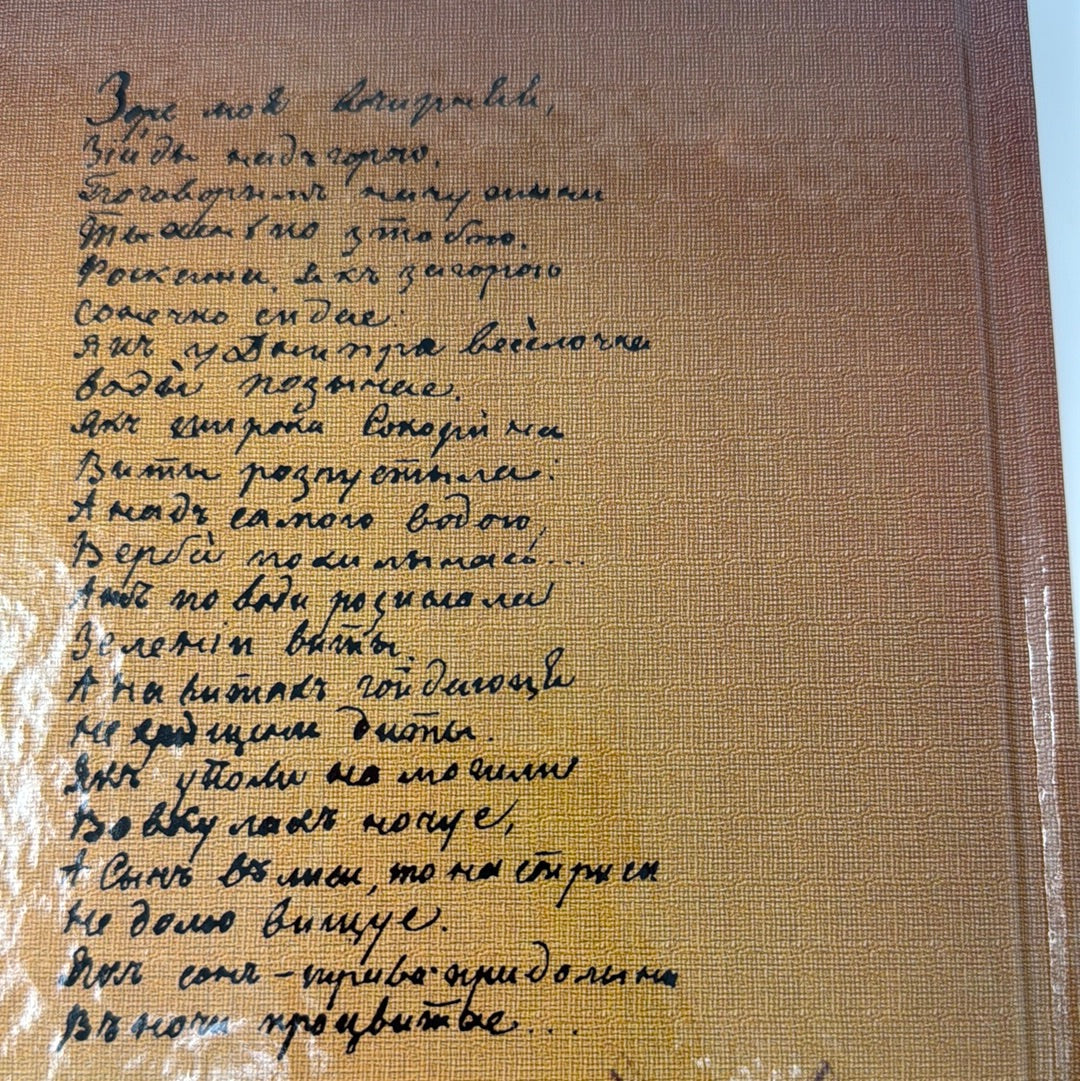 Зоре моя вечирняя,
Зійды надъ горою.
Поговорымъ тыхесенько
въ неволи зъ тобою.
Роскажы, якъ за горою
сонечко сидае:
якъ у Днипра весёлочка
воды позычае.
Якъ широка Сокорина
Виты розпустыла:
А надъ самою водою,
Верба похилылась...
Ажъ по води розислала
Зеленіи виты.
А на витахъ гойдаюця
не хрищени диты.
Якъ у поли на могили
Вовкулакъ ночуе,
А Сычъ въ лиси, то на стриси
Не долю вищує.
Якъ сонъ-трава при долыни
Въ ночи процвитае...